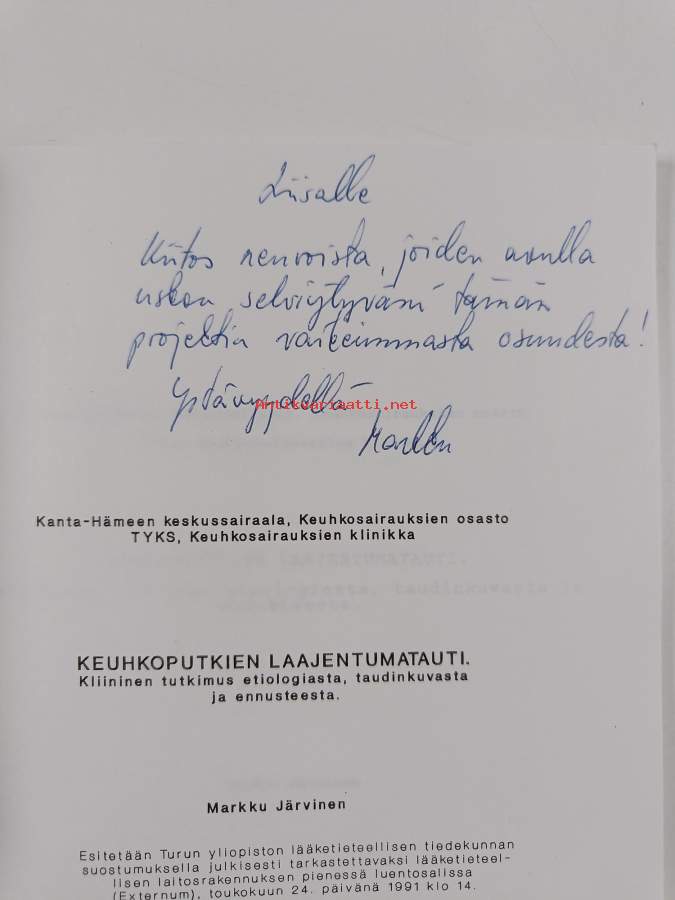 Liisalle
Kiitos neuvoista, joiden avulla
uskon selviytyväni tämän
projektin vaikeimmasta osuudesta!
Ystävyydellä
Artikvariaatti.net
Markku
Kanta-Hämeen keskussairaala, Keuhkosairauksien osasto
TYKS, Keuhkosairauksien klinikka
KEUHKOPUTKIEN LAAJENTUMATAUTI.
Kliininen tutkimus etiologiasta, taudinkuvasta
ja ennusteesta.
Markku Järvinen
Esitetään Turun yliopiston lääketieteellisen tiedekunnan
suostumuksella julkisesti tarkastettavaksi lääketieteel-
lisen laitosrakennuksen pienessä luentosalissa
(Externum), toukokuun 24. päivänä 1991 klo 14.